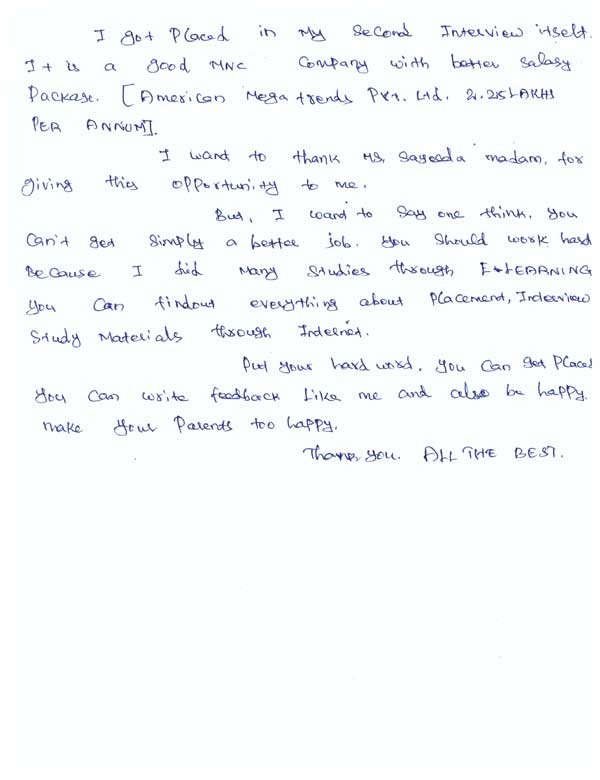 I got Placed in My Second Interview itself.
It is a good MNC Company with better Salary
Package. [American Mega trends Pvt. Ltd. 2.25 LAKHS
PER ANNUM].
I want to thank Ms. Sayeeda madam, for
giving this opportunity to me.
But, I want to say one think, you
Can't get Simply a better job. you should work hard
Because I did Many Studies through E-LEARNING
you can findout everything about Placement, Interview
Study Materials through Internet.
Put your hard word, you can get Placed
you can write feedback Like me and also be happy.
make your Parents too happy.
Thank you. ALL THE BEST.